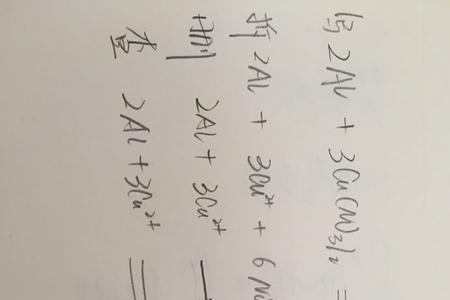 写 2Al + 3Cu(NO3)2 =
拆 2Al + 3Cu²⁺ + 6N
删 2Al + 3Cu²⁺
查 2Al + 3Cu²⁺ =